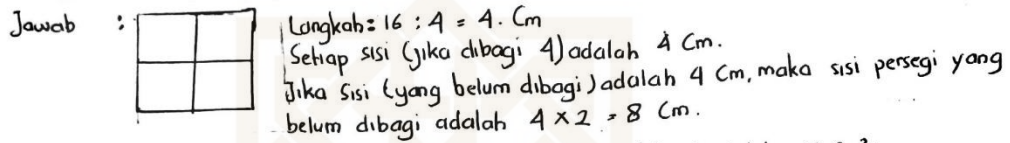 Jawab : Langkah: 16 : 4 = 4. Cm
Setiap sisi (jika dibagi 4) adalah 4 Cm.
Jika Sisi (yang belum dibagi) adalah 4 Cm, maka sisi persegi yang
belum dibagi adalah 4 x 2 = 8 Cm.